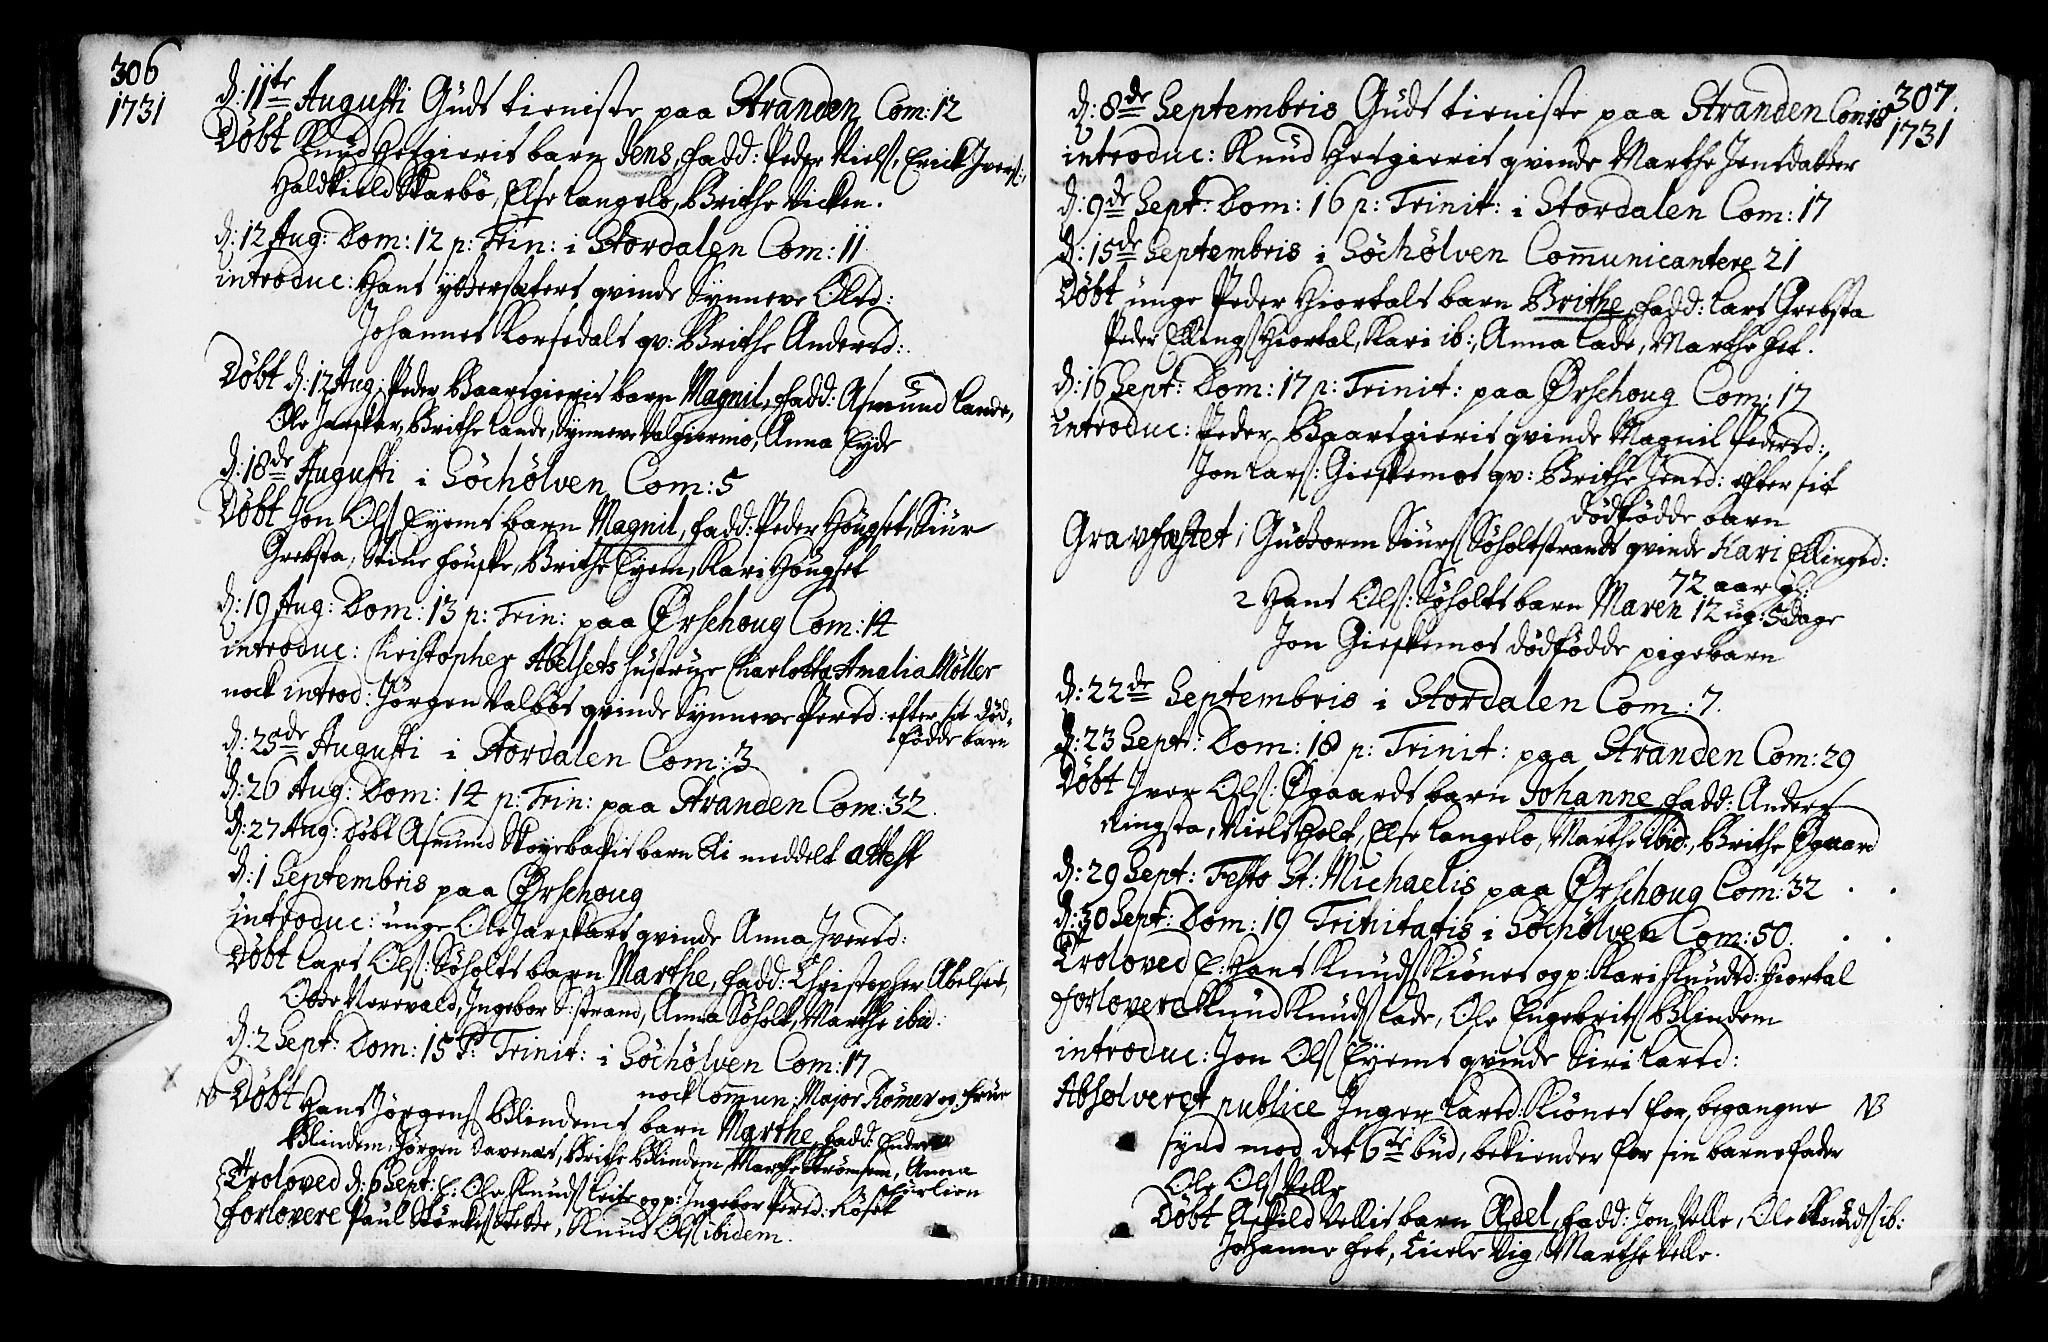 306
1731
d: 11te Augusti Guds tieniste paa Stranden Com: 12
Døbt Knud Helgieris barn Jens, fadd: Peder Niels: Erick Ivers:,
Haldkield Skarbø, Else Langelo, Brithe Vicken.
d: 12 Aug: Dom: 12 p: Trin: i Stordalen Com: 11
introduc: Hans ytterseters qvinde Synneve Olsd:
Johannes Korsedals qv: Brithe Andersd:
Døbt d: 12 Aug: Peder Baarsgieris barn Magnil, fadd: Asmund Lande,
Ole Jarskar, Brithe Lande, Synneve Valgiermo, Anna Eyde
d: 18de Augusti i Söchölven Com: 5
Døbt Jon Ols Eyems barn Magnil, fadd: Peder Hougset, Siur
Grebsta, Stine fouske, Brithe Eyem, Kari Hougset
d: 19 Aug: Dom: 13 p: Trin: paa Ørschoug Com: 14
introduc: Christopher Abelsets hustrue Charlotta Amalia Møller
nock introd: Jørgen Valbøs qvinde Synneve Persd: efter sit død-
fødde barn
d: 25de Augusti i Stordalen Com: 3
d: 26 Aug: Dom: 14 p: Trin: paa Stranden Com: 32.
d: 27 Aug: Døbt Asmund barn meddelt attest
d: 1 Septembris paa Ørschoug
introduc: unge Ole Jarskars qvinde Anna Iversd:
Døbt Lars Ols: Søholts barn Marthe, fadd: Christopher Abelset,
Otte Nerevald, Ingebor S:strand, Anna Søholt, Marthe ibid:
d: 2 Sept: Dom: 15 P: Trinit: i Söchölven Com: 17
nock Comun: Major Römer og frue
Døbt Hans Jørgens Blindems barn Marthe, fadd:
Blindem, Jørgen Davenes, Brithe Blindem, Marthe Strømsem, Anna
Hurlien
Troloved d: 6 Sept: E: Ole Knuds Leite og p: Ingebor Persd: Røset
forlovere Paul Størckers Tette, Knud Ols ibidem.
307.
1731
d: 8de Septembris Guds tieniste paa Stranden Com: 18
introduc: Knud Helgieris qvinde Marthe Jensdatter
d: 9de Sept: Dom: 16 p: Trinit: i Stordalen Com: 17
d: 15de Septembris i Söchölven Communicantere 21
Døbt unge Peder Hiortals barn Brithe, fadd: Lars Grebsta
Peder Ellings Hiortal, Kari ib:, Anna Lade, Marthe Fet.
d: 16 Sept: Dom: 17 p: Trinit: paa Ørschoug Com: 17
introduc: Peder Baarsgieris qvinde Magnil Pedersd:,
Jon Lars: Gieskemos qv: Brithe Jensd: efter sit
dødfødde barn
Gravfæstet 1 Guttorm Siurs Søholtstrands qvinde Kari Ellingsd:
72 aar gl:
2 Hans Ols: Søholts barn Maren 12 ug: 5 dage
Jon Gieskemos dødfødde pigebarn
d: 22de Septembris i Stordalen Com: 7.
d: 23 Sept: Dom: 18 p: Trinit: paa Stranden Com: 29
Døbt Iver Ols: Øgaards barn Johanne, fadd: Anders
Ringsta, Niels Holt, Else Langelo, Marthe ibid:, Brithe Øgaard
d: 29 Sept: Festo St: Michaelis paa Ørschoug Com: 32
d: 30 Sept: Dom: 19 Trinitatis i Söchölven Com: 50.
Troloved E: Hans Knuds Kiønes og p: Kari Knudsd: Hiortal
forlovere Knud Knuds Lade, Ole Engebrits Blindem
introduc: Jon Ols Eyems qvinde Siri Larsd:
Absolveret publice Inger Larsd: Kiønes for begangne NB
synd mod det 6te bud, bekiender for sin barnefader
Ole Ols Velle
Døbt Askild Vellis barn Adel, fadd: Jon Velle, Ole Knuds ib:
Johanne Fet, Cicele Vig, Marthe Velle.